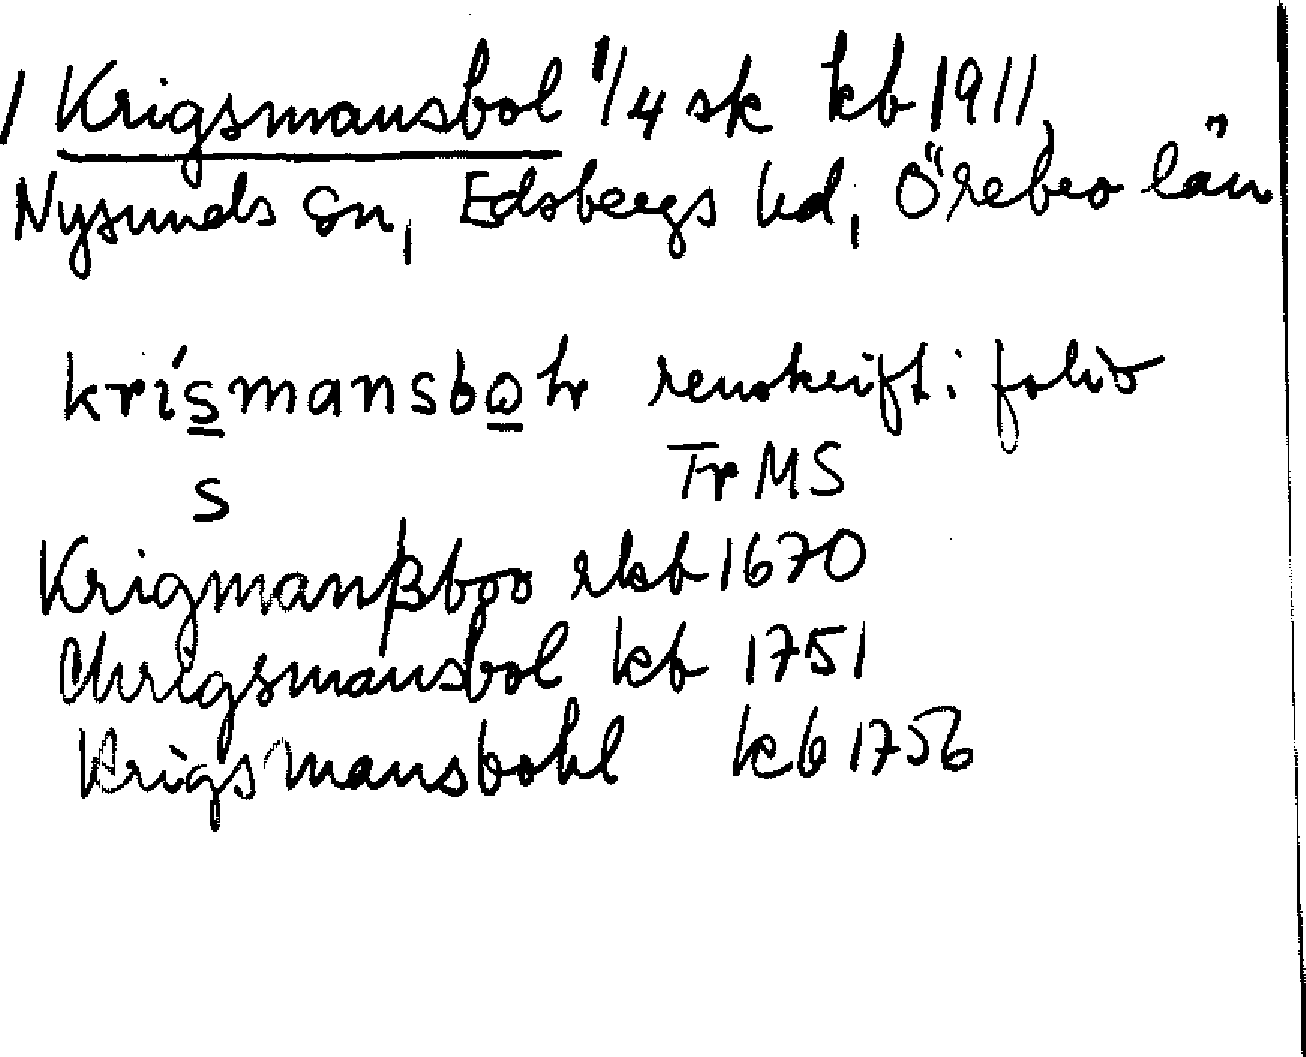 1 Krigsmansbol 1/4 sk kb 1911,
Nysunds sn, Edsbergs hd, Örebro län
krísmansbo̲ renskrift i folio
s Tr MS
Krigmanßboo rkb 1670
Chrigsmansbol kb 1751
Krigsmansbohl kb 1756